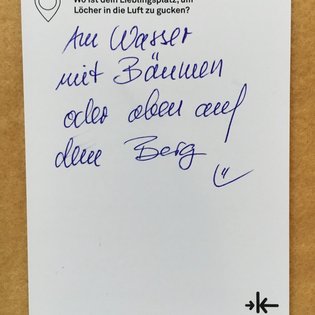 Wo ist dein Lieblingsplatz, um
Löcher in die Luft zu gucken?
Am Wasser
mit Bäumen
oder oben auf
dem Berg